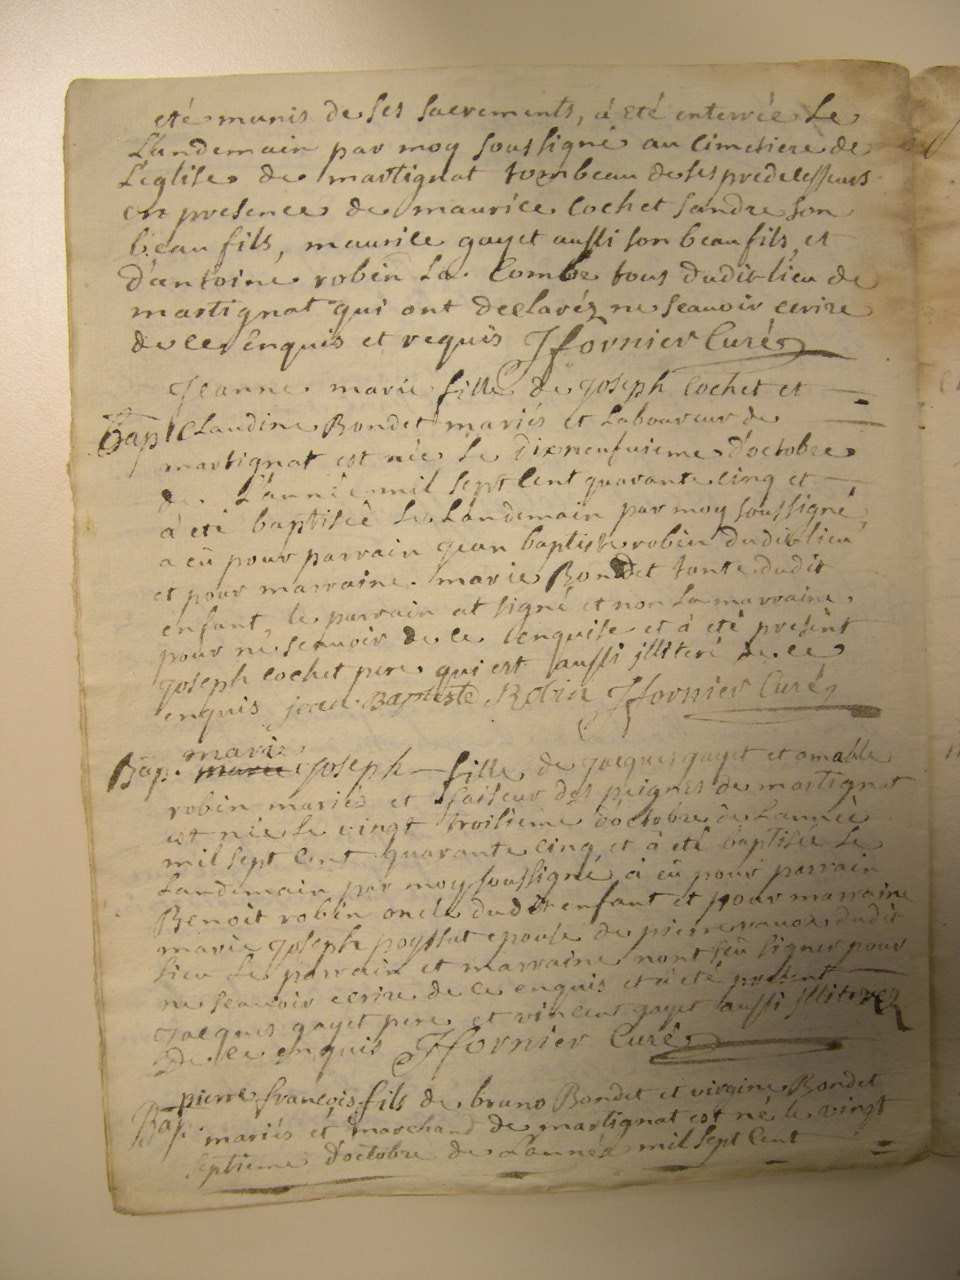 eté munis de ses sacrements, á eté enterrée Le
Landemain par moy soussigné au cimetiere de
L'eglise de martignat tombeau de ses predecesseurs
en presence de maurice cochet sandre son
beau fils, maurice gayet aussi son beau fils, et
d'antoine robin La Combe tous dudit lieu de
martignat qui ont declaréz ne scauoir ecrire
de ce enquis et requis Jfornier Curé
Jeanne marie fille de joseph cochet et
Bap. Claudine Bondet mariés et Laboureur de
martignat est née Le dixneufuieme d'octobre
de L'année mil sept Cent quarante cinq et
á eté baptisée Le Landemain par moy soussigné
a eü pour parrain jean baptiste robin dudit lieu
et pour marraine marie Bondet tante dudit
enfant, le parrain at signé et non La marraine
pour ne scauoir de ce enquise et á eté présent
joseph cochet pere qui est aussi jlliteré de ce
enquis jean Baptiste Robin Jfornier Curé
marie
Bap. marie joseph fille de jacques gayet et amable
robin mariés et faiseur des peignes de martignat
est née Le vingt troisieme d'octobre de L'année
mil sept Cent quarante cinq, et á eté baptisée Le
Landemain par moy soussigné, á eü pour parrain
Benoit robin oncle dudit enfant et pour marraine
marie joseph poysat epouse de pierre dudit
Lieu Le parrain et marraine nont seü signer pour
ne scauoir ecrire de ce enquis et á eté present
jacques gayet pere et vincent gayet aussi jlliterez
De ce enquis Jfornier Curé
pierre françois fils de bruno Bondet et Bondet
Bap. mariés et marchand de martignat est né le vingt
septieme d'octobre de L'année mil sept Cent